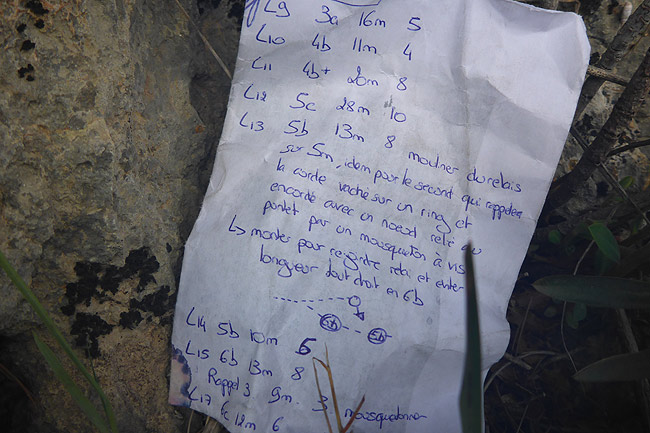 L9 3a 16m 5
L10 4b 11m 4
L11 4b+ 20m 8
L12 5c 28m 10
L13 5b 13m 8 mouliner du relais
sur 5m, idem pour le second qui rappellera
la corde vaché sur un ring et
encordé avec un noeud relié au
pontet par un mousqueton à vis
↳ monter pour rejoindre relai et éviter
longueur dont droit en 6b
5b
L14 5b 10m 6
L15 6b 13m 8
Rappel 3 9m 3 mousquetonner
L17 6c 12m 6